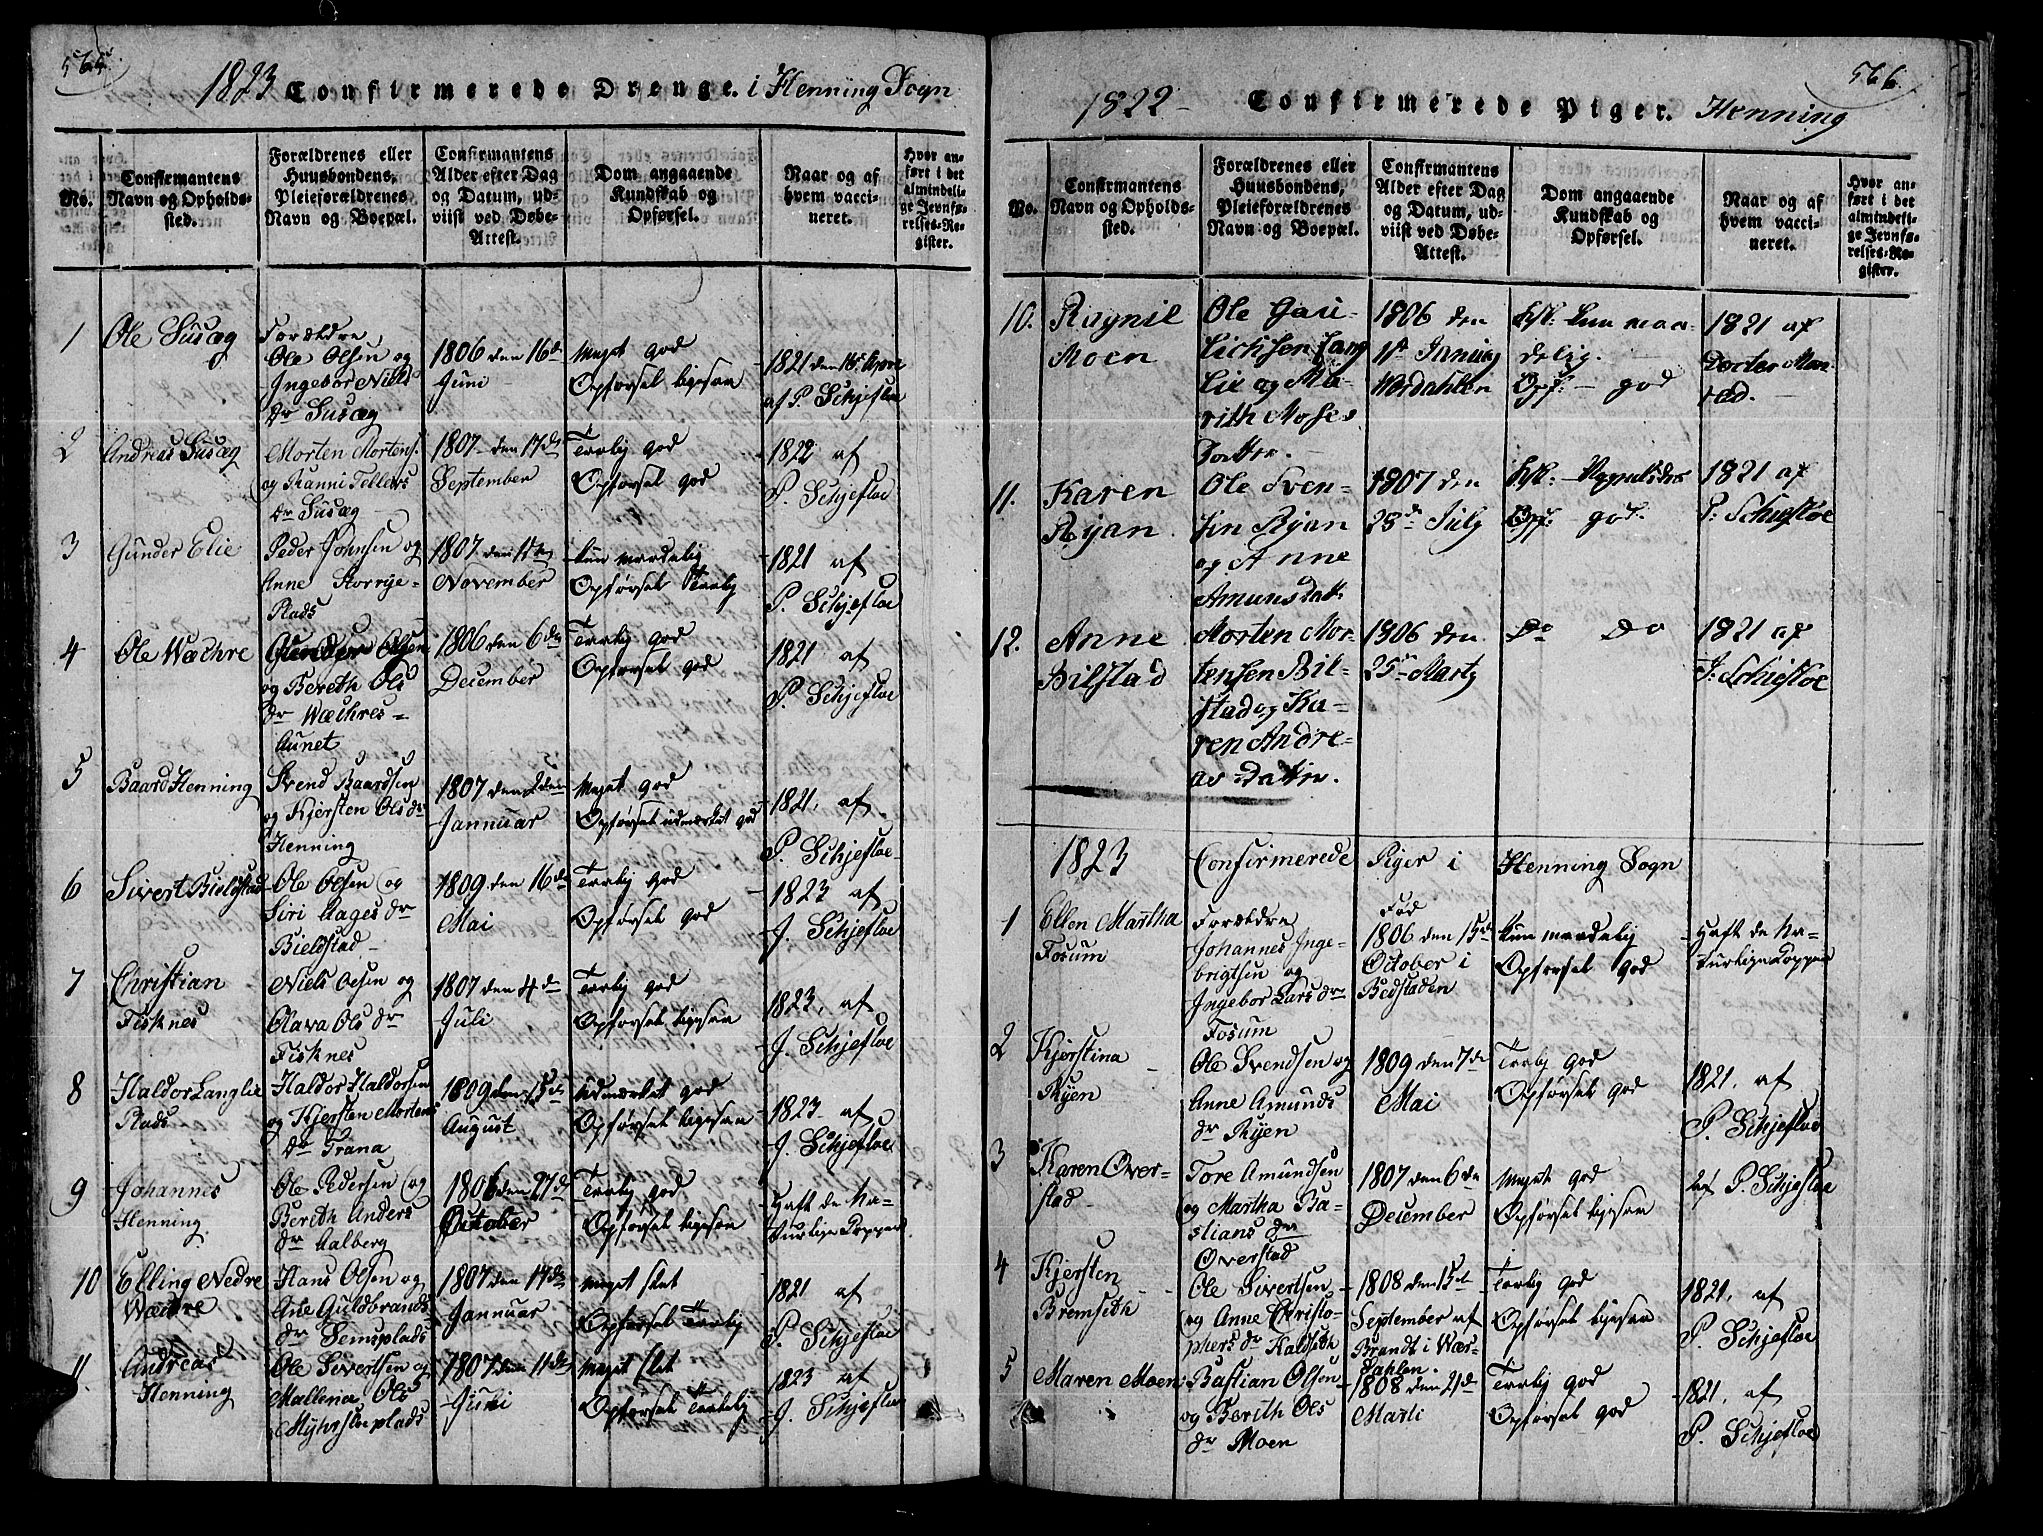 565.
1823 Confirmerede Drenge. i Henning Sogn
No.
Confirmantens
Navn og Opholds-
sted.
Forældrenes eller
Huusbondens,
Pleieforældrenes
Navn og Boepæl.
Confirmantens
Alder efter Dag
og Datum, ud-
viist ved Døbe-
Attest.
Dom angaaende
Kundskab og
Opførsel.
Naar og af
hvem vacci-
neret.
Hvor an-
ført i det
almindeli-
ge Jevnfø-
relses-Re-
gister.
1
Ole Susæg
Forældre
Ole Olsen og
Ingebor Niels
dr Susæg
1806 den 16de
Juni
Meget god
Opførsel ligesaa
1821 den
af P. Schjefloe
2
Andreas Susæg
Morten Mortens.
og Ranni Tellefs
dr Susæg
1807 den 17de
September
Temlig god
Opførsel god
1822 af
P. Schjefloe
3
Gunder Elie
Peder Johnsen og
Anne Storrye-
Plads
1807 den 15de
November
kun maadelig
Opførsel Temlig
1821 af
P. Schjefloe
4
Ole Wæchre
Gunder Olsen
og Bereth Ols
dr Wæchres-
Aunet
1806 den 6de
December
Temlig god
Opførsel god
1821 af
P. Schjefloe
5
Baard Henning
Svend Baardsen
og Kjersten Ols dr
Henning
1807 den 2den
Jannuar
Meget god
Opførsel udmærket god
1821. af
P. Schjefloe
6
Sivert Bieldstad
Ole Olsen og
Siri Aages dr
Bieldstad
1809 den 16de
Mai
Temlig god
Opførsel god
1823 af
J. Schjefloe
7
Christian
Fisknes
Niels Olsen og
Olava Ols dr
Fisknes
1807 den 4de
Juli
Temlig god
Opførsel ligesaa
1823. af
J. Schjefloe
8
Haldor Langlie
Plads
Haldor Haldorsen
og Kjersten Mortens
dr Trana
1809 den 15de
August
udmærket god
Opførsel ligesaa
1823 af
J. Schjefloe
9
Johannes
Henning.
Ole Pedersen og
Berith Anders
dr Aalberg
1806 den 27de
October
Temlig god
Opførsel ligesaa
Haft de Na-
turlige Kopper
10
Elling Nedre
Wæchre
Hans Olsen og
Guldbrands
dr Semsplads
1807 den 17de
Jannuar
Meget slet
Opførsel Temlig
1821 af
P. Schjefloe
11.
Andreas
Henning
Ole Sivertsen og
Mallena Ols
Myhrslieplads
1807 den 11de
Juli
Meget slet
Opførsel Temlig
1823 af
J. Schjefloe
566.
1822 - Confirmerede Piger. Henning
No.
Confirmantens
Navn og Opholds-
sted.
Forældrenes eller
Huusbondens,
Pleieforældrenes
Navn og Boepæl.
Confirmantens
Alder efter Dag
og Datum, ud-
viist ved Døbe-
Attest.
Dom angaaende
Kundskab og
Opførsel.
Naar og af
hvem vacci-
neret.
Hvor an-
ført i det
almindeli-
ge Jevnfø-
relses-Re-
gister.
10.
Ragnil
Moen
Ole Gau-
Lang
Lie og Ma-
rith Moses
Datter.
1806 den
Værdahlen
Ksk: kun maa-
delig.
Opf: god
1821 af
Dorter Mon
rad.
11.
Karen
Ryan
Ole Sven-
sen Ryan
og Anne
Amunsdatt.
1807 den
28de July
Ksk:
Opf: god.
1821 af
P: Schiefloe
12.
Anne
Bilstad
Morten Mor-
tensen Bil-
stad og Ka-
ren Andre-
as Datter.
1806 den
25de Marty
Do Do
1821 af
J. Schiefloe
1823 Confirmerede Piger i Henning Sogn
1
Ellen Martha
Fosum
Forældre
Johannes Inge-
brigtsen og
Ingebor Lars dr
Fosum
Fød
1806 den 15de
October i
Bedstaden
kun maadelig
Opførsel God
Haft de Na-
turlige Kopper
2
Kjerstina
Ryen
Ole Svendsen og
Anne Amunds
dr Ryen
1809 den 7de
Mai
Temlig God
Opførsel God
1821. af
P. Schjefloe
3
Karen Over-
stad
Tore Amundsen
og Martha Ba-
stians dr
Overstad
1807 den 6de
December
Meget god
Opførsel ligesaa
af P. Schjefloe
4
Kjersten
Bremseth
Ole Sivertsen
og Anne Christo-
phers dr Kaldseth
1808 den 15de
September af
Brandt i Wær-
dahlen.
Temlig God
Opførsel ligesaa
1821. af
P. Schjefloe
5
Maren Moen
Bastian Olsen
og Berith Ols
dr Moen
1808 den 21de
Marti
Temlig God
Opførsel God
1821. af
P. Schjefloe